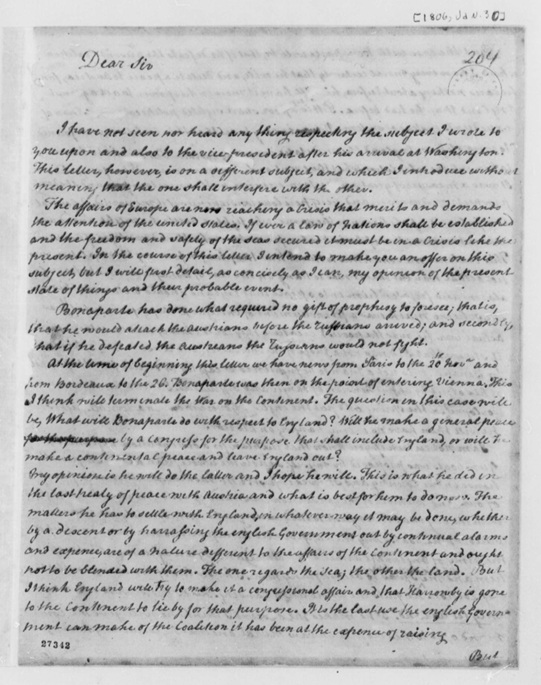 [1806, Jan. 30]
204
Dear Sir
I have not seen nor heard any thing respecting the subject I wrote to
you upon and also to the vice president after his arrival at Washington.
This letter, however, is on a different subject, and which I introduce without
meaning that the one shall interfere with the other.
The affairs of Europe are now reaching a Crisis that merits and demands
the attention of the united states. If ever a law of Nations shall be established
and the freedom and safety of the seas secured it must be in a Crisis like the
present. In the course of this letter I intend to make you an offer on this
subject, but I will first detail, as concisely as I can, my opinion of the present
state of things and their probable event.
Bonaparte has done what required no gift of prophesy to foresee; that is,
that he would attack the Austrians before the Russians arrived; and secondly,
that if he defeated the Austrians the Russians would not fight.
At the time of beginning this letter we have news from Paris to the 20 Nov. and
from Bordeaux to the 26. Bonaparte was then on the point of entering Vienna. This
I think will terminate the War on the Continent. The question in this case will
be, What will Bonaparte do with respect to England? Will he make a general peace
by a Congress for the purpose that shall include England, or will he
make a continental peace and leave England out?
My opinion is he will do the latter and I hope he will. This is what he did in
the last treaty of peace with Austria and what is best for him to do now. The
matters he has to settle with England, in whatever way it may be done, whether
by a descent or by harrassing the english Government out by continual alarms
and expence, are of a Nature different to the affairs of the Continent and ought
not to be blended with them. The one regards the Sea; the other the land. But
I think England will try to make it a congressional affair and that Harrowby is gone
to the Continent to lie by for that purpose. It is the last use the english Govern-
ment can make of the Coalition it has been at the expence of raising
But
27342